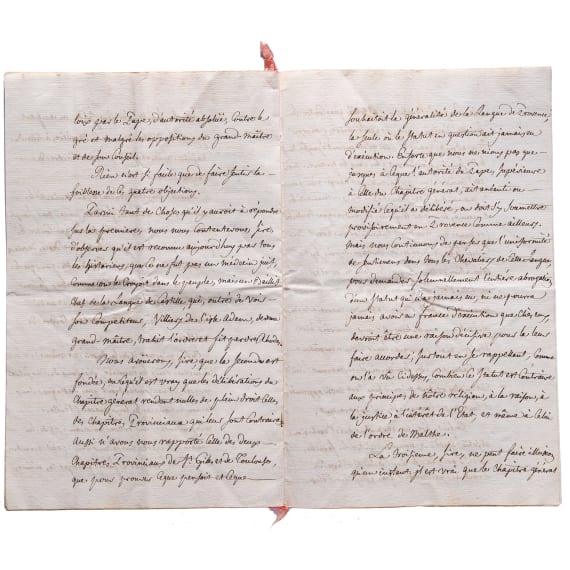 lois par le Pape, d'autorité absolüe, Contre le
gré et malgré les oppositions du grand-maître
et de son Conseil.
Rien n'est si facile que de faire sentir la
foiblesse de Ces quatre objections.
Parmi tant de Choses qu'il y auroit à répondre
sur la premiere, nous nous Contenterons, sire,
d'observer qu'il est reconnu aujourd'huy par tous
les historiens, que Ce ne fut pas un médecin juif,
Comme on le Croyoit dans le peuple, mais un Baillif
Chef de la Langue de Castille qui, outré de Voir
son Compétiteur, Villiers de l'isle Adam, devenu
grand maître, trahit l'ordre et fit perdre Rhodes.
Nous avoüerons, sire, que la seconde est
fondée, en ce qu'il est vray que les délibérations du
Chapitre général rendent nulles de plein droit Celles
des Chapitres Provinciaux qui leur sont Contraires
aussi n'avons nous rapporté Celle des deux
Chapitres Provinciaux de St. Gilles et de Toulouse,
que pour prouver Ce que pensoit et Ce que
souhaitoit la généralité de la Langue de Provence,
la seule où le statut en question ait jamais eu
d'exécution. En sorte que nous ne nions pas que
jusques à Ce que l'autorité du Pape, supérieure
à Celle du Chapitre général, ait anéanti ou
modifié Ce qu'il a délibéré, on doit s'y soumettre
provisoirement en Provence Comme ailleurs.
Mais nous Continuons de penser que l'uniformité
de sentimens dans tous les Chevaliers de Cette Langue,
pour demander solennellement l'entière abrogation
d'un statut qui n'a jamais eu, ni ne pourra
jamais avoir en france d'exécution que Chez eux,
devroit être une raison décisive pour la leur
faire accorder; surtout en se rappellant, Comme
on l'a Vu Cidessus, Combien Ce statut est Contraire
aux principes de nôtre religion, à la raison, à
la justice, à l'intérêt de l'Etat, et même à Celui
de l'ordre de Malthe.
La Troisieme, sire, ne peut faire illusion
qu'un instant, il est vrai que le Chapitre général